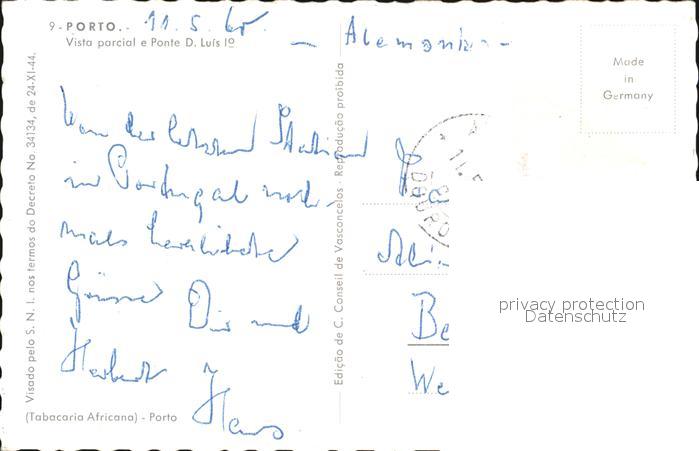 9 - PORTO. - 11.5.65
Vista parcial e Ponte D. Luís Iº
- Alemanha -
Made
in
Germany
Von der letzten Station
in Portugal noch-
mals herzliche
Grüsse Dir und
Herbert
Hans
Be
We
privacy protection
Datenschutz
Visado pelo S. N. I. nos termos do Decreto No. 34134, de 24-XI-44.
Edição de C. Conseil de Vasconcelos - Reprodução proibida
(Tabacaria Africana) - Porto